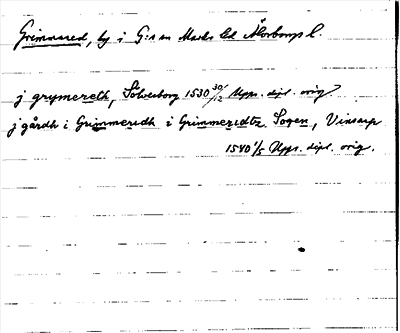 Grimmared, by i G:s sn Marks hd Älvsborgs l.
j grymereth, Sölvesborg 1530 30/12 Upps. dipl. orig
j gårdh i Grimmeredh i Grimmeredtz Sogen, Vinsarp
1540 1/5 Upps. dipl. orig.